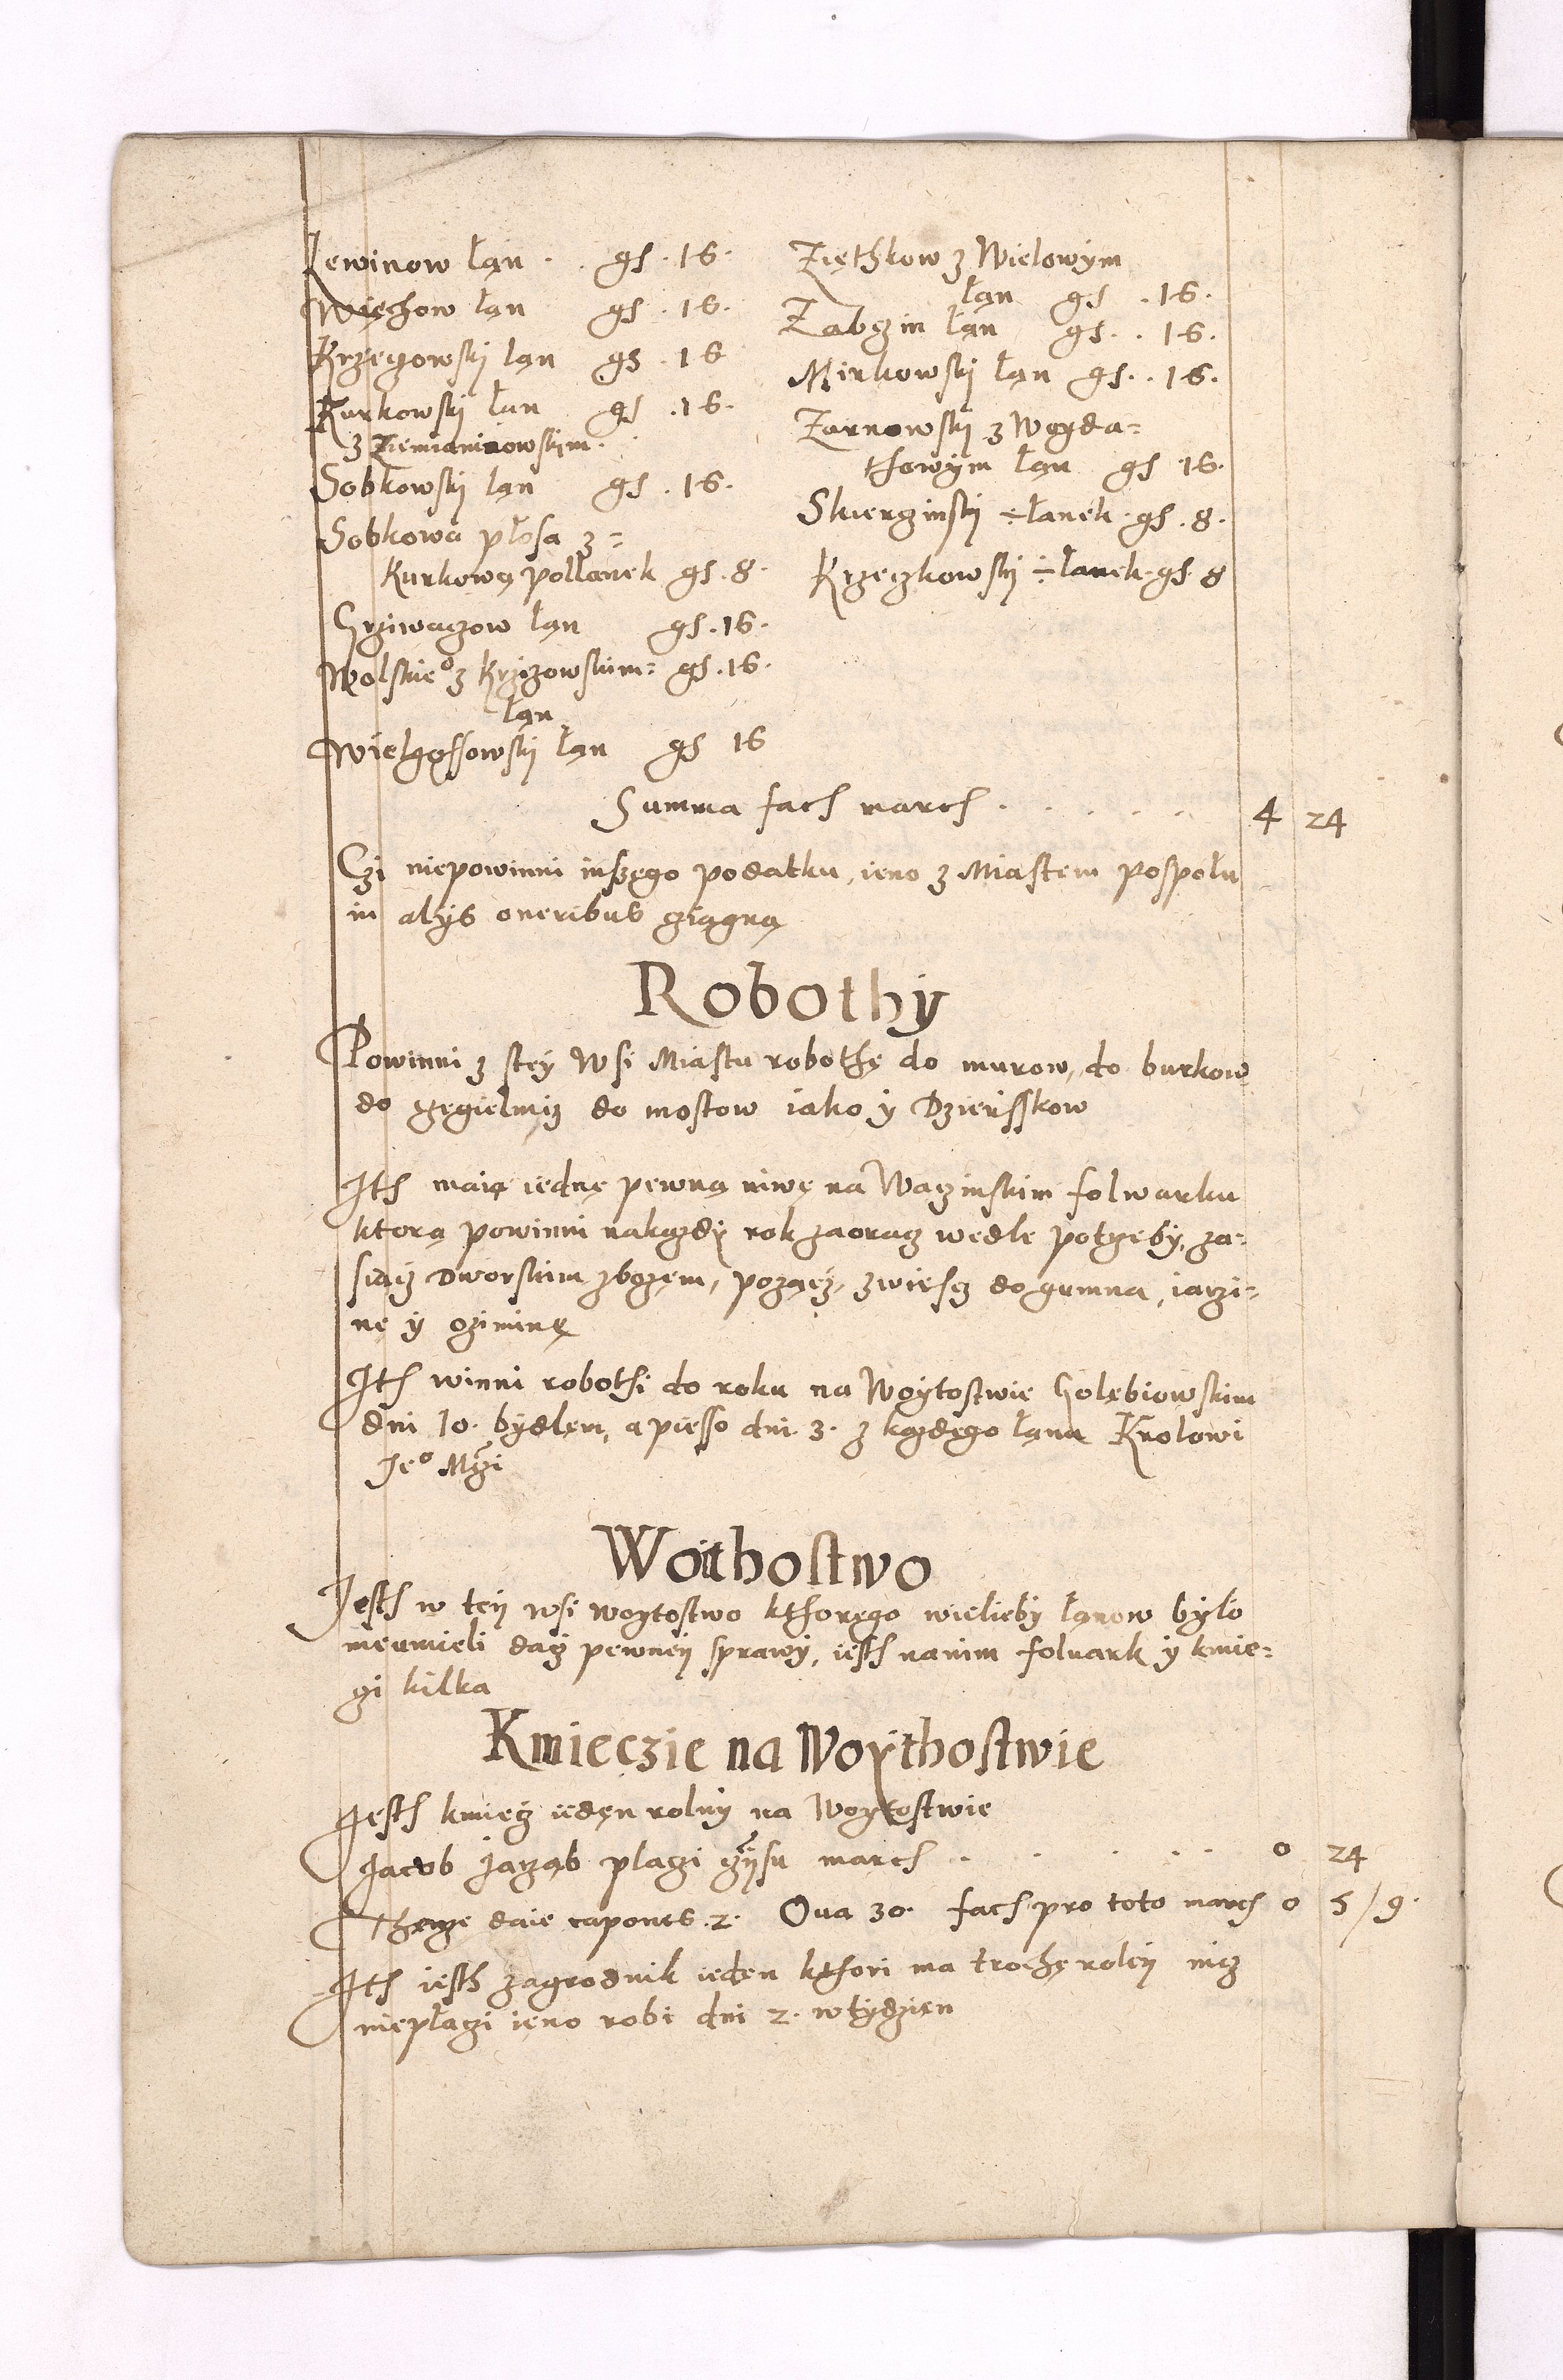 Lewinow łąn . . gs . 16 .
Więchow łan gs . 16 .
Krzęgowski ląn gs . 16
Kurkowski łan gs . 16 .
z Ziemianinowskim .
Sobkowski ląn gs . 16 .
Sobkowa płosa z =
Kurkową pollanek gs . 8 .
Grziwaczow łąn gs . 16 .
Wolskieo z Krzizowskim = gs . 16 .
łąn
Wielgossowski łąn gs 16
Zięthkow z Wielowym
łąn gs . 16 .
Zabczin łąn gs . . 16 .
Mirkowski łąn gs . . 16 .
Zarnowski z Woyda=
thowym łąn gs 16 .
Skierzinski ÷ łanek . gs . 8 .
Krzeczkowski ÷ łanek . gs . 8
Summa fach march . . . . . 4 24
Czi niepowinni inszego podatku, ieno z Miastem pospolu
in alÿs oneribus cziągną
Robothÿ
Powinni z stey Wsi Miastu robothę do murow, do burkow
do czegielnicz do mostow iako y Dziersskow
Ith maią iednę pewną niwę na Waczinskim folwarku
ktorą powinni nakozdÿ rok zaoracz wedle potrzeby, za=
siacz Dworskim zbozem, pozącz, zwiescz do gumna, iarzi=
nę y oziminę
Ith winni robothi do roku na Woytostwie Golębiowskim
dni 10 . bydlęm, a piesso dni . 3 . z kozdęgo łanu Krolowi
Jeo Mczi
Woithostwo
Jesth w teÿ wsi woytostwo kthoręgo wielieby łąnow było
nieumieli dacz pewneÿ sprawÿ, iesth nanim folwark ÿ kmie=
czi kilka
Kmieczie na Woÿthostwie
Jesth kmiecz ieden rolny na Woytostwie
Jacob Jarząb placzi czÿsu march . . . . . . 0 24
Thenze daie capones . 2 . Oua 30 . fach pro toto march 0 5 / 9 .
Ith iesth zagrodnik ieden kthori ma trochę roleÿ nicz
niepłaczi ieno robi dni 2 . wtydzien